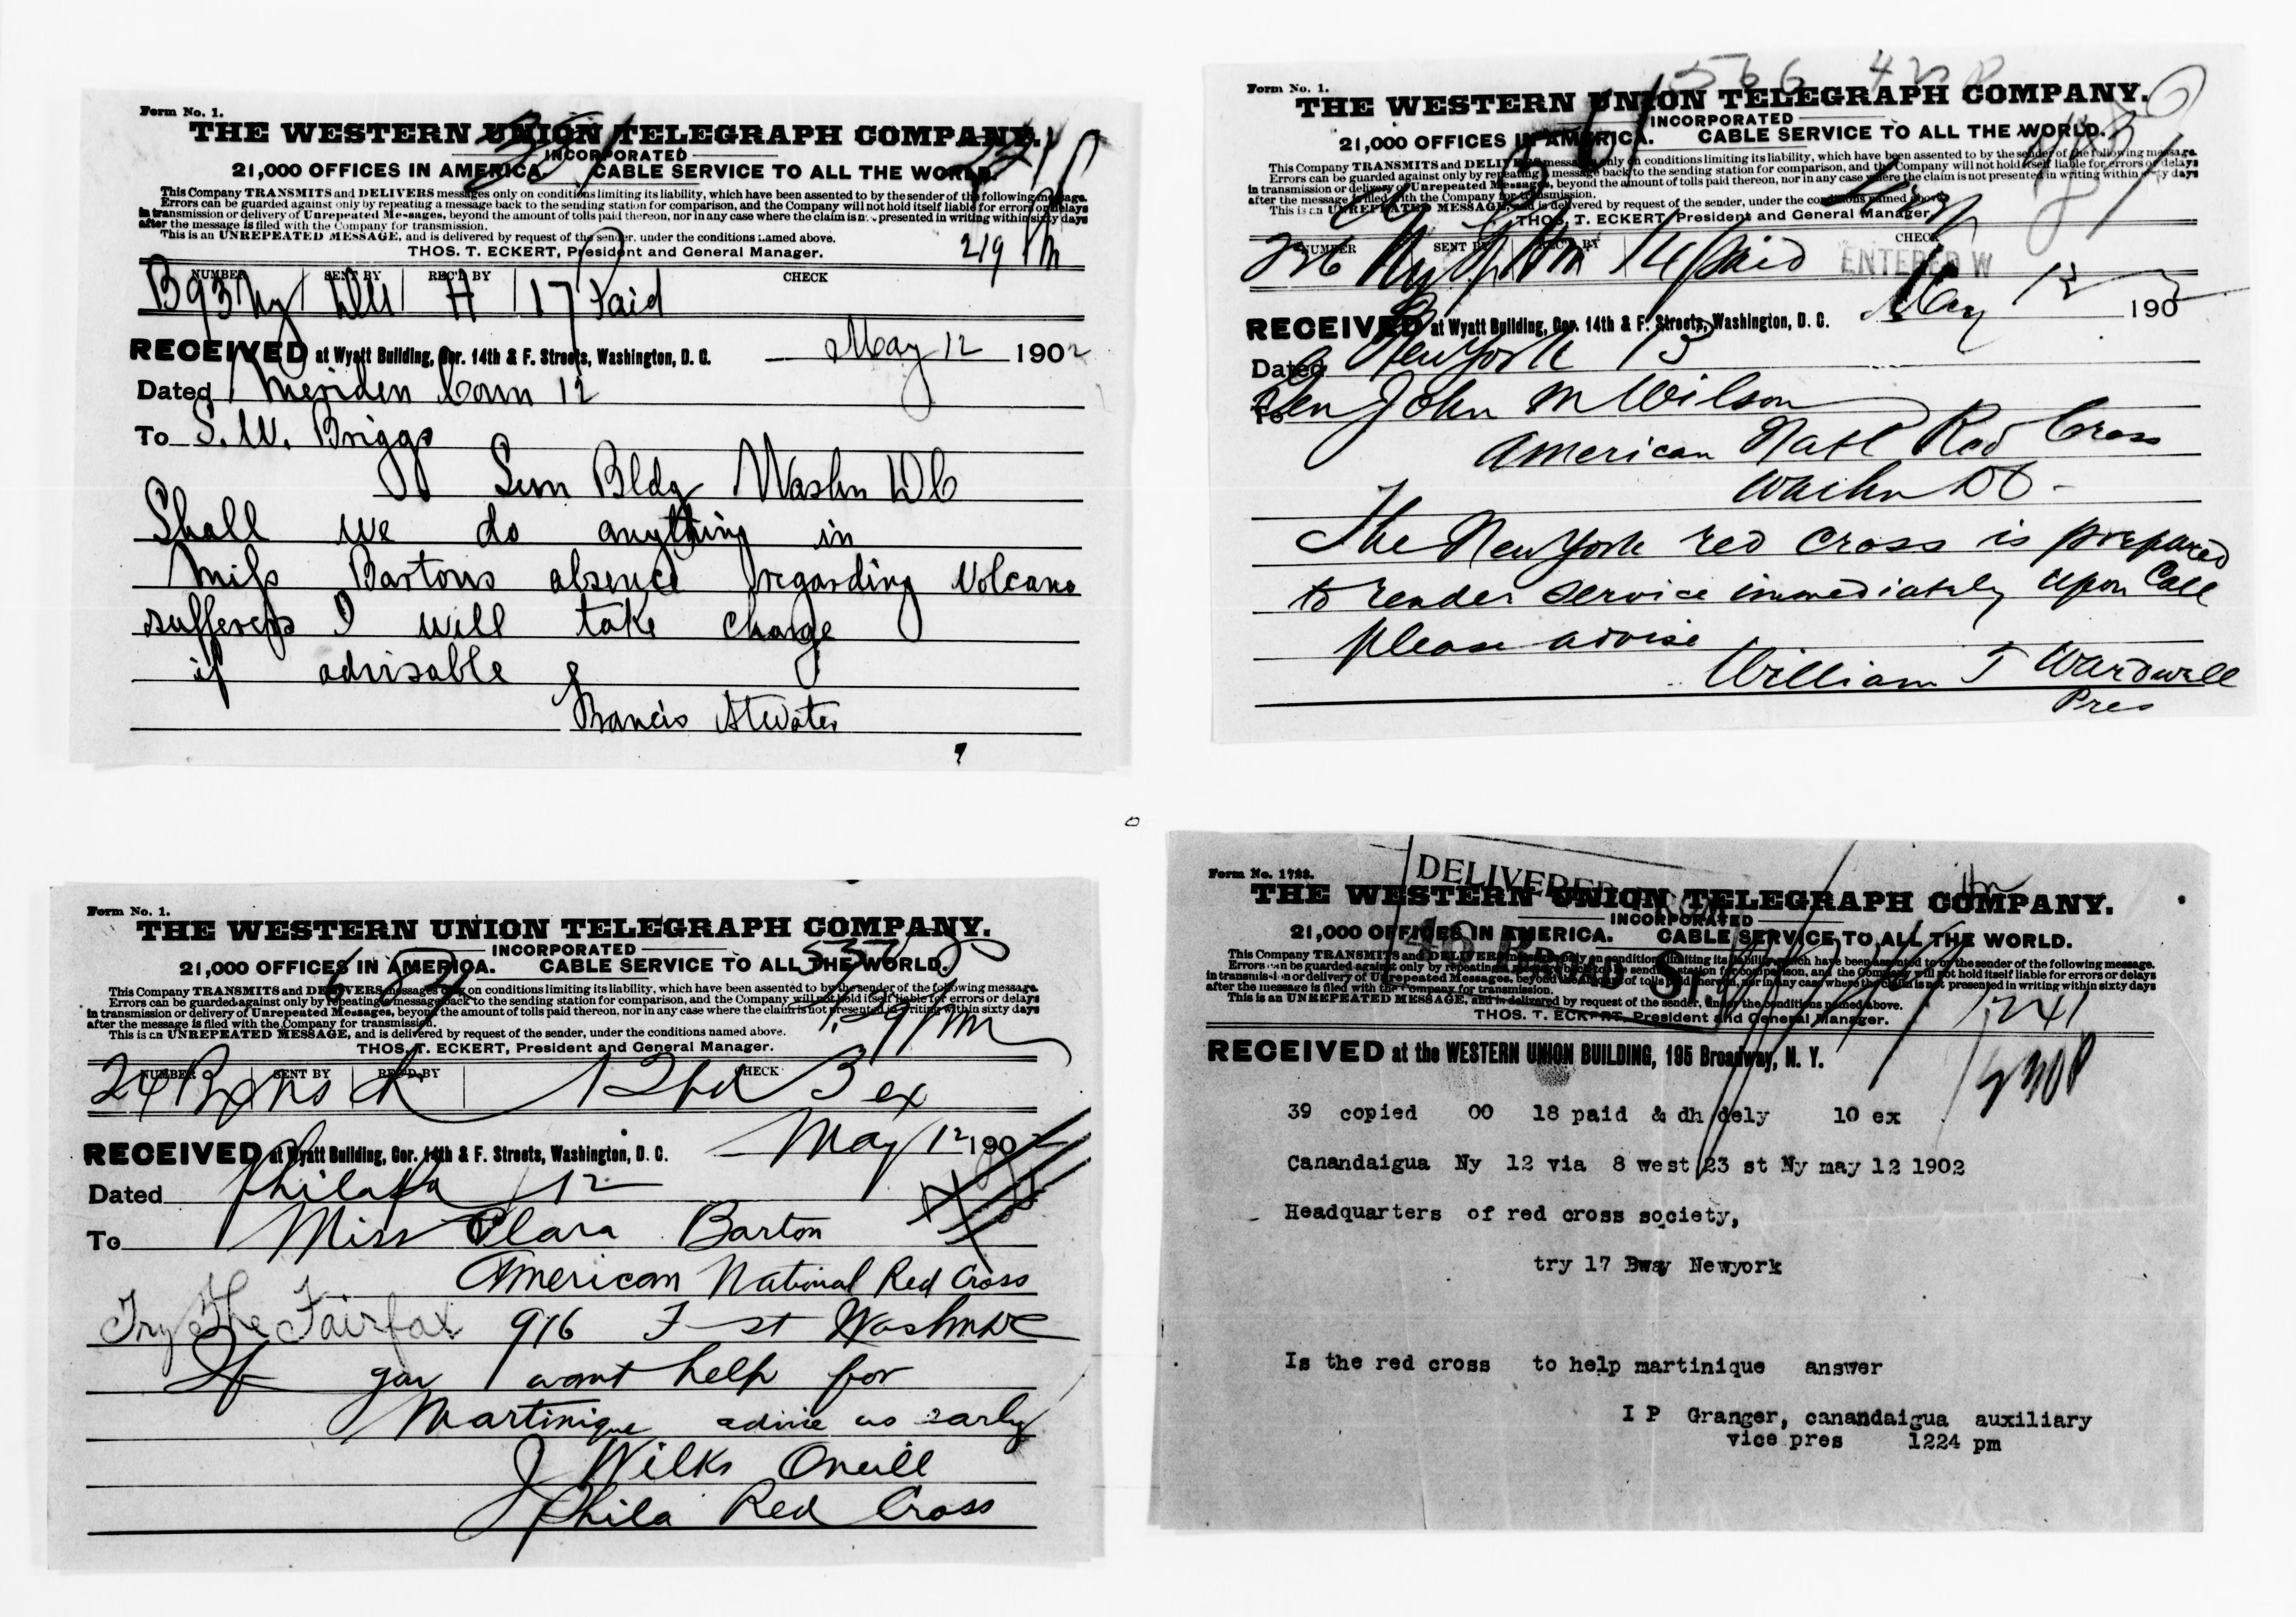 Form No. 1.
THE WESTERN UNION TELEGRAPH COMPANY.
INCORPORATED
21,000 OFFICES IN AMERICA. CABLE SERVICE TO ALL THE WORLD.
This Company TRANSMITS and DELIVERS messages only on conditions limiting its liability, which have been assented to by the sender of the following message.
Errors can be guarded against only by repeating a message back to the sending station for comparison, and the Company will not hold itself liable for errors or delays
in transmission or delivery of Unrepeated Messages, beyond the amount of tolls paid thereon, nor in any case where the claim is not presented in writing within sixty days
after the message is filed with the Company for transmission.
This is an UNREPEATED MESSAGE, and is delivered by request of the sender, under the conditions named above.
THOS. T. ECKERT, President and General Manager.
219 Pm
NUMBER SENT BY REC'D BY CHECK
B93 Ny H 17 Paid
RECEIVED at Wyatt Building, Cor. 14th & F. Streets, Washington, D. C. May 12 1902
Dated Meriden Conn 12
To S. W. Briggs
Sun Bldg Washn DC
Shall we do anything in
Miss Bartons absence regarding Volcano
sufferers I will take charge
if advisable
Francis Atwater
Form No. 1.
566
THE WESTERN UNION TELEGRAPH COMPANY.
INCORPORATED
21,000 OFFICES IN AMERICA. CABLE SERVICE TO ALL THE WORLD.
This Company TRANSMITS and DELIVERS messages only on conditions limiting its liability, which have been assented to by the sender of the following message.
Errors can be guarded against only by repeating a message back to the sending station for comparison, and the Company will not hold itself liable for errors or delays
in transmission or delivery of Unrepeated Messages, beyond the amount of tolls paid thereon, nor in any case where the claim is not presented in writing within sixty days
after the message is filed with the Company for transmission.
This is an UNREPEATED MESSAGE, and is delivered by request of the sender, under the conditions named above.
THOS. T. ECKERT, President and General Manager.
NUMBER SENT BY REC'D BY CHECK
226 Ny 14 Paid ENTERED W
RECEIVED at Wyatt Building, Cor. 14th & F. Streets, Washington, D. C. May 12 1902
Dated New York 13
To Gen John M Wilson
American Natl Red Cross
Washn DC -
The New York red cross is prepared
to render service immediately upon Call
please advise
William T Wardwell
Pres
Form No. 1.
THE WESTERN UNION TELEGRAPH COMPANY.
INCORPORATED
21,000 OFFICES IN AMERICA. CABLE SERVICE TO ALL THE WORLD.
This Company TRANSMITS and DELIVERS messages only on conditions limiting its liability, which have been assented to by the sender of the following message.
Errors can be guarded against only by repeating a message back to the sending station for comparison, and the Company will not hold itself liable for errors or delays
in transmission or delivery of Unrepeated Messages, beyond the amount of tolls paid thereon, nor in any case where the claim is not presented in writing within sixty days
after the message is filed with the Company for transmission.
This is an UNREPEATED MESSAGE, and is delivered by request of the sender, under the conditions named above.
THOS. T. ECKERT, President and General Manager.
NUMBER SENT BY REC'D BY CHECK
24 12 pd 3 ex
RECEIVED at Wyatt Building, Cor. 14th & F. Streets, Washington, D. C. May 12 1902
Dated Phila Pa 12
To Miss Clara Barton
American National Red Cross
Try The Fairfax 916 F st Washn DC
If you want help for
Martinique advise us early
J Wilks Oneill
Phila Red Cross
Form No. 1723.
DELIVERED
THE WESTERN UNION TELEGRAPH COMPANY.
INCORPORATED
21,000 OFFICES IN AMERICA. CABLE SERVICE TO ALL THE WORLD.
This Company TRANSMITS and DELIVERS messages only on conditions limiting its liability, which have been assented to by the sender of the following message.
Errors can be guarded against only by repeating a message back to the sending station for comparison, and the Company will not hold itself liable for errors or delays
in transmission or delivery of Unrepeated Messages, beyond the amount of tolls paid thereon, nor in any case where the claim is not presented in writing within sixty days
after the message is filed with the Company for transmission.
This is an UNREPEATED MESSAGE, and is delivered by request of the sender, under the conditions named above.
THOS. T. ECKERT, President and General Manager.
1241
RECEIVED at the WESTERN UNION BUILDING, 195 Broadway, N. Y.
39 copied 00 18 paid & dh dely 10 ex
Canandaigua Ny 12 via 8 west 23 st Ny may 12 1902
Headquarters of red cross society,
try 17 Bway Newyork
Is the red cross to help martinique answer
I P Granger, canandaigua auxiliary
vice pres 1224 pm